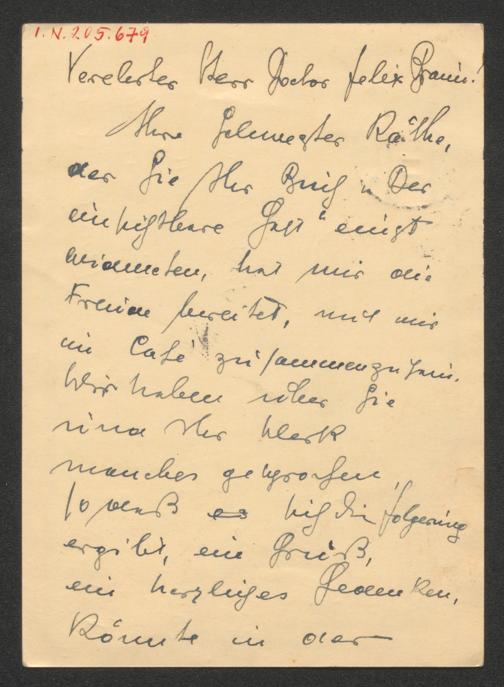 I.N.205.679
Verehrter Herr Doctor Felix Braun!
Ihre Schwester Käthe,
der Sie Ihr Buch „Der
unsichtbare Gast“ einst
widmeten, hat mir die
Freude bereitet, mit mir
im Café zusammenzusein.
Wir haben über Sie
und Ihr Werk
manches gesprochen,
sodaß es sich die Folgerung
ergibt, ein Gruß,
ein herzliches Gedenken,
könnte in der